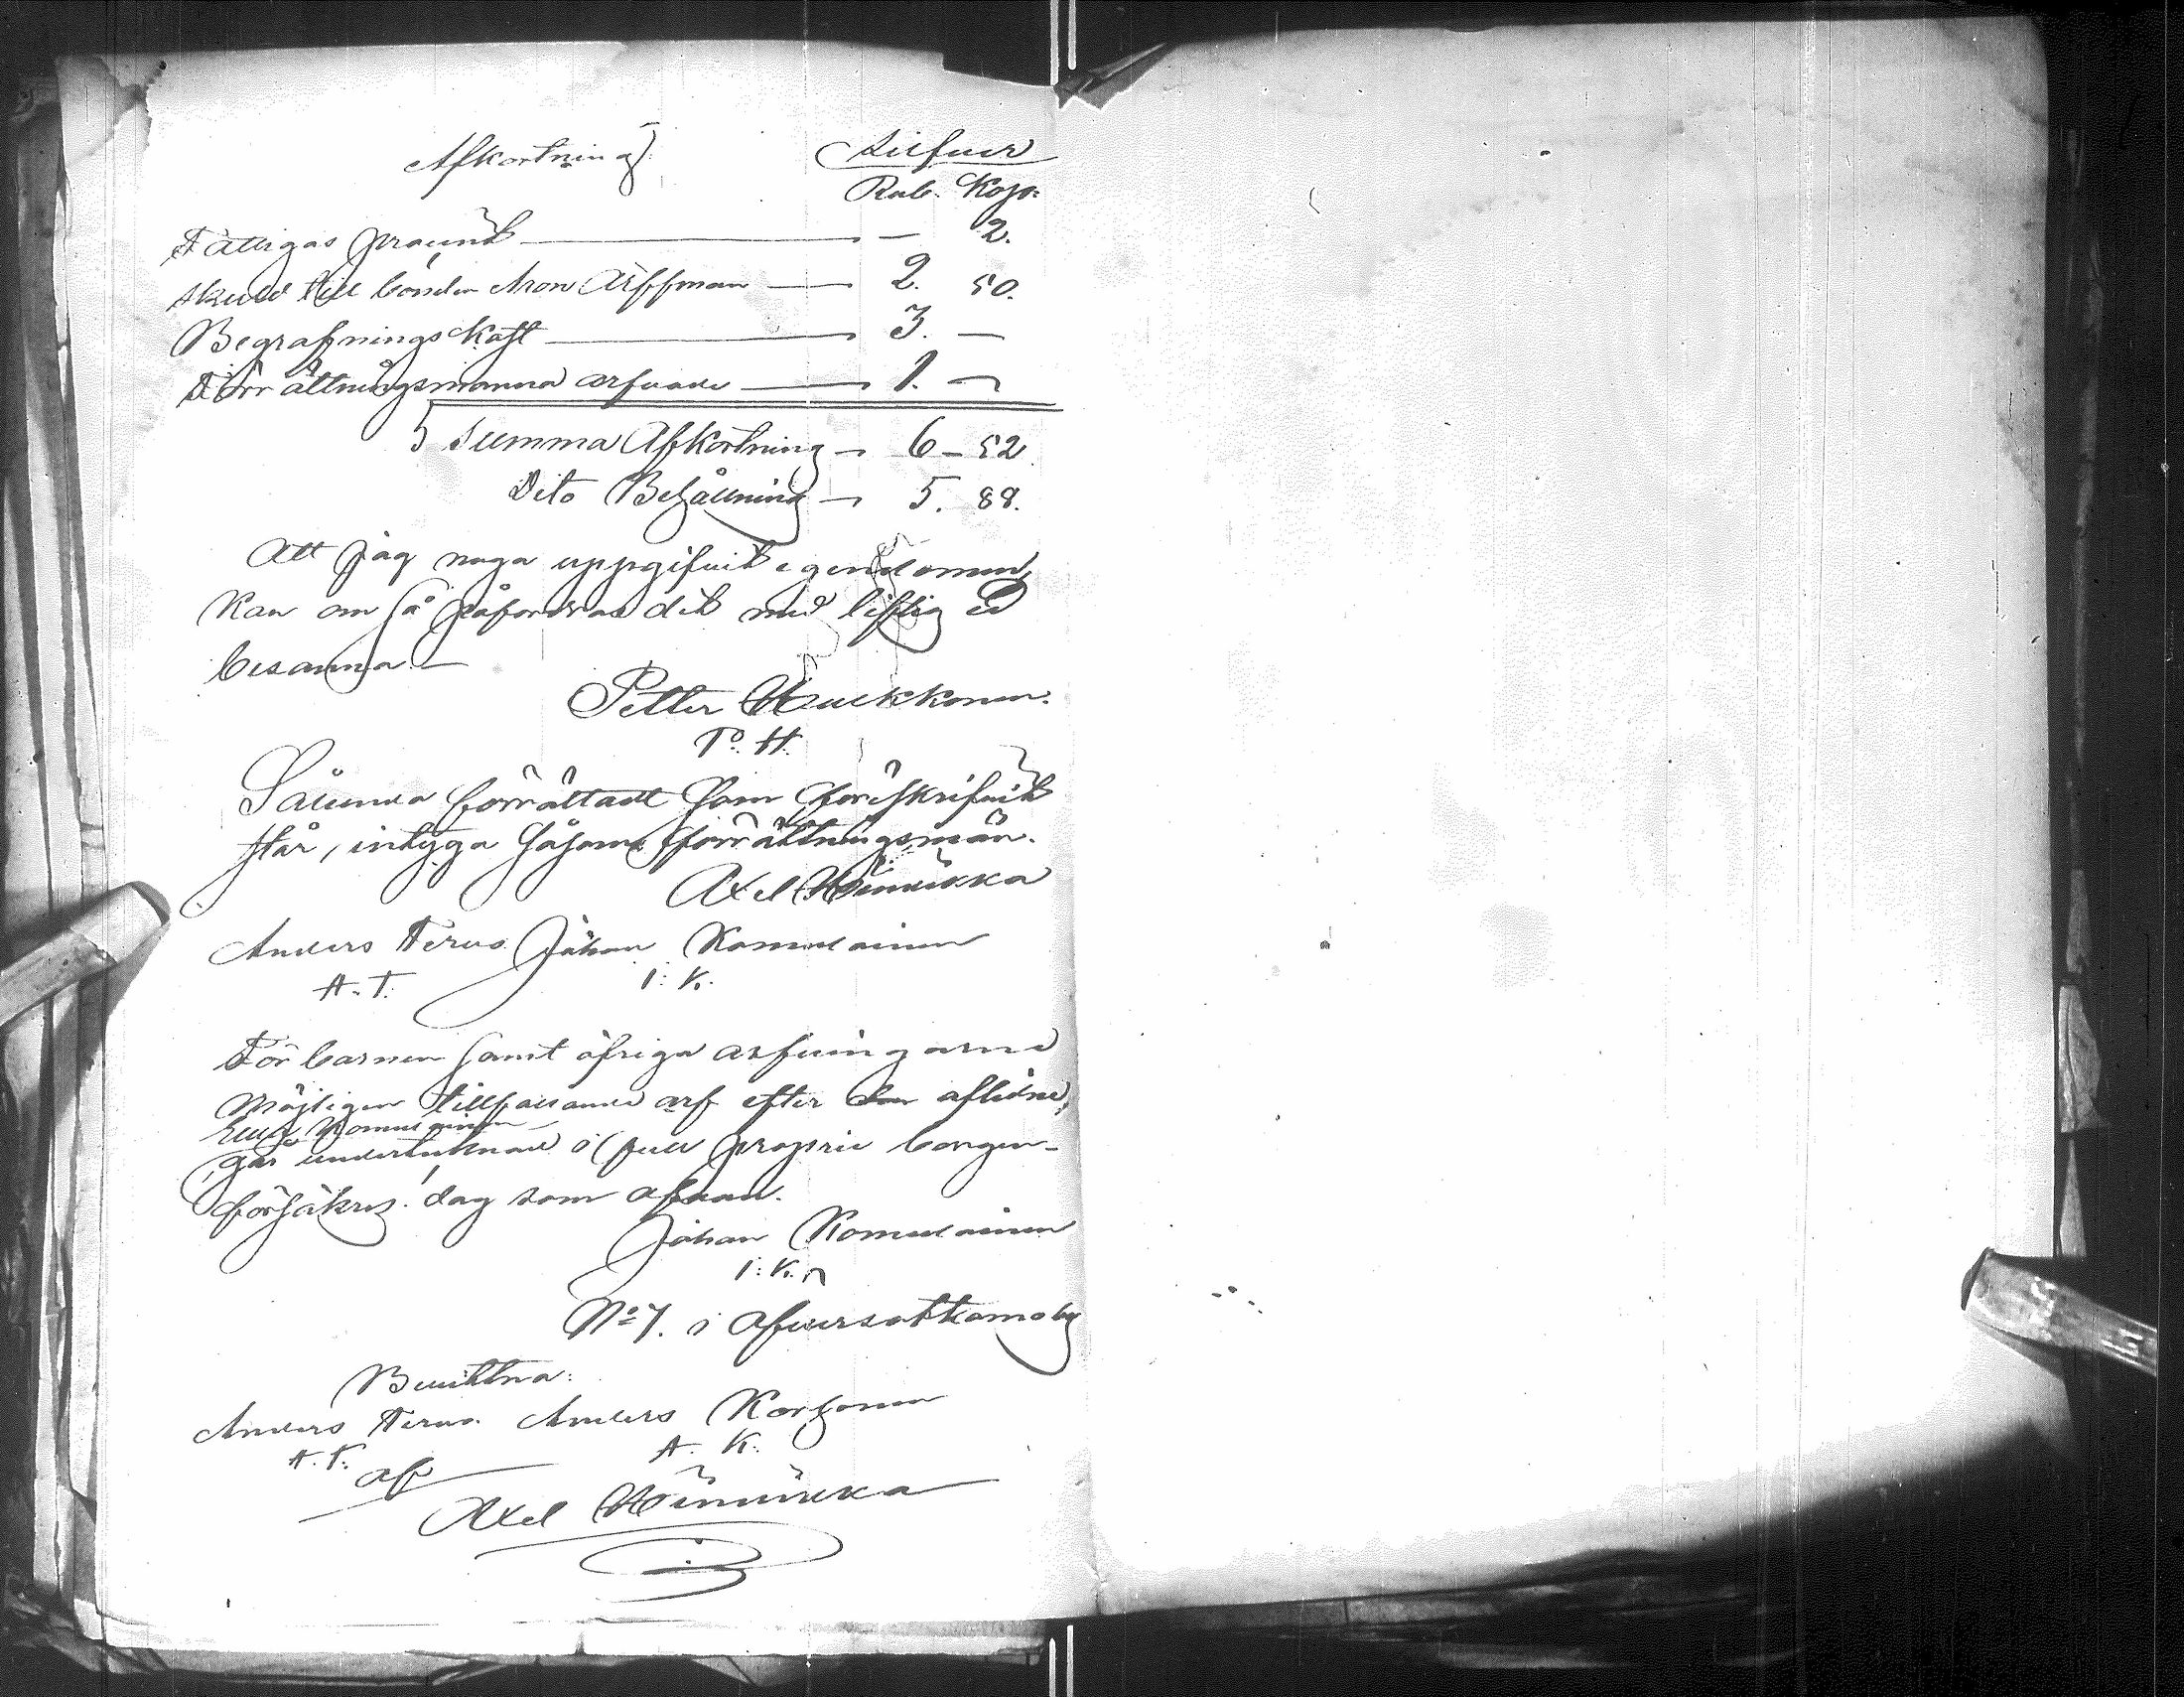 Afkortning: Silfver
Rub. Kop:
Fattigas procent — — 2.
Skuld till bonden Aron Äffman — 2. 50.
Begrafnings kost — 3. —
Förrättningsmanna arfvode — 1. —
Summa Afkortning — 6 – 52
Dito Behållning — 5. 88.
Att jag noga uppgifvit egendomen,
kan om så påfordras det med liflig ed
besanna. —
Petter Huckkonen.
P. H.
Sålunda förrättadt som föreskrifvit
står, intyga såsom förrättningsmän.
Axel
Anders Tervo Johan Komulainen
A. T. I: K.
För barnen samt öfriga arfvingarne
Möjligen tillfallande arf efter den aflidne,
Komulainen
går undertecknad i full proprie borgen-
försäkras. dag som ofvan.
Johan Komulainen
I: K.
No 7. i by
Bevittna:
Anders Tervo. Anders Korhonen
A. T. A. K.
af
Axel